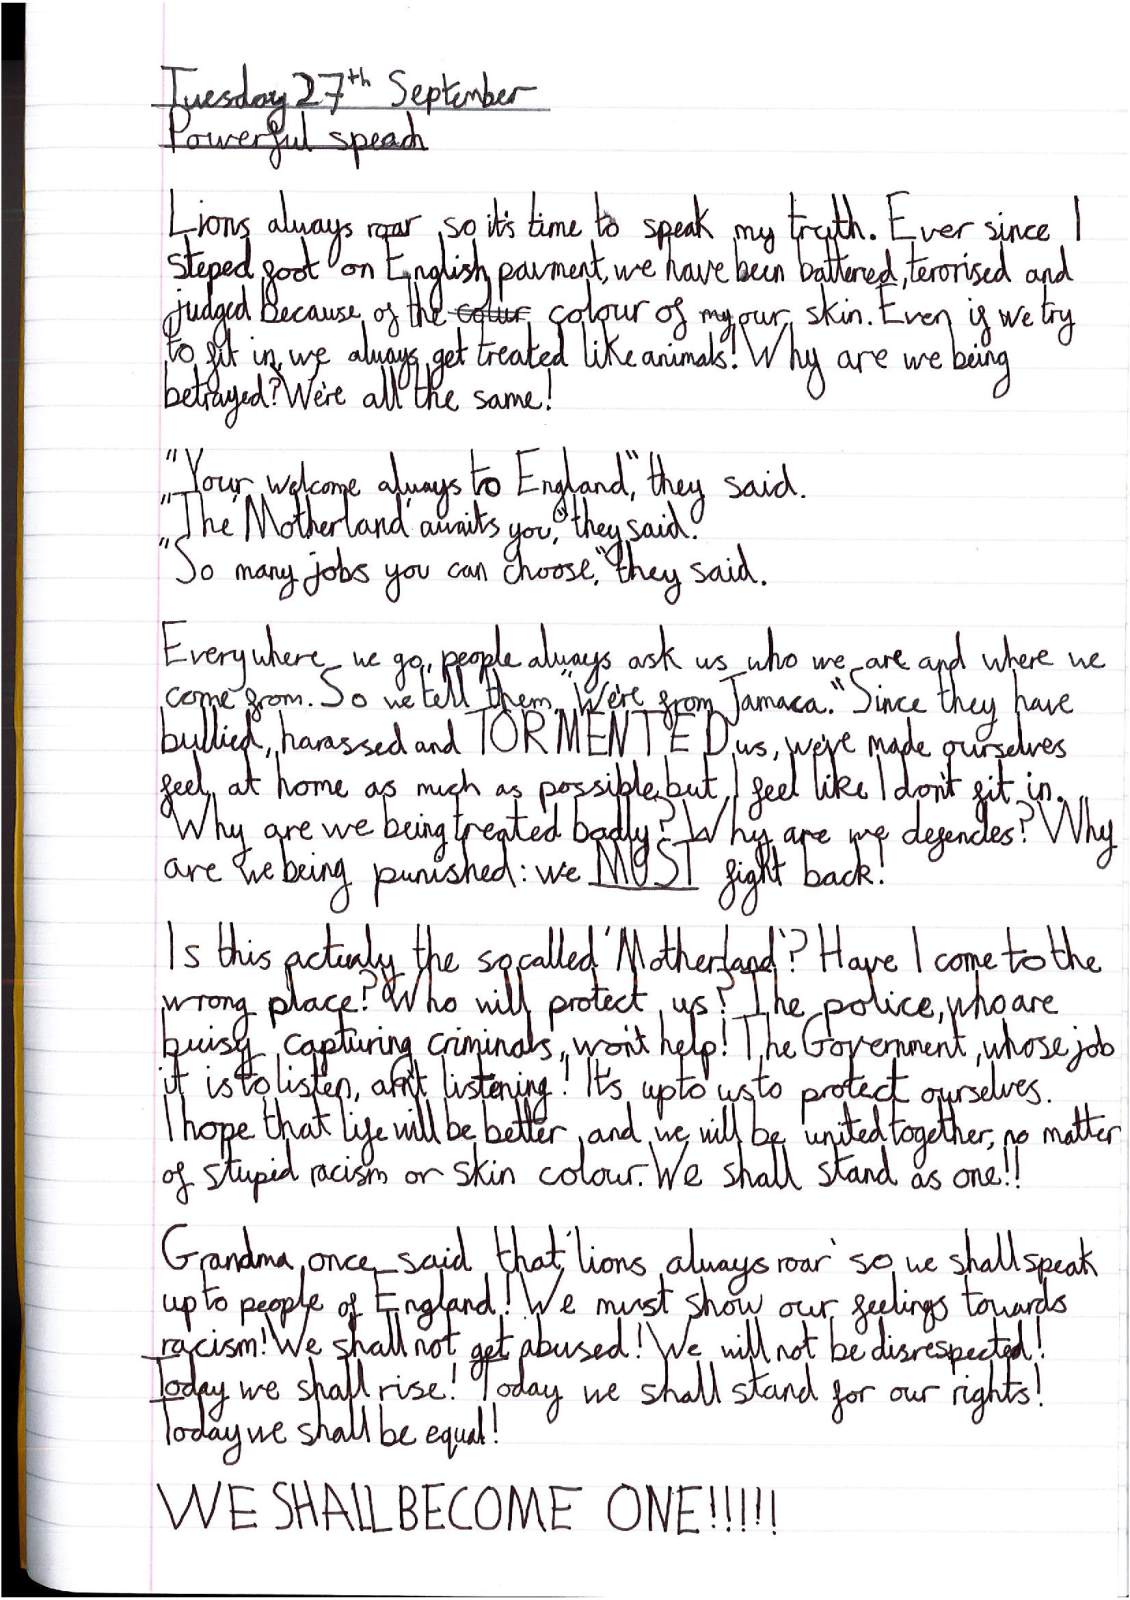 Tuesday 27th September
Powerful speach
Lions always roar so it's time to speak my truth. Ever since I
steped foot on English pavment, we have been battered, terorised and
judged because of the colur colour of my our skin. Even if we try
to fit in, we always get treated like animals! Why are we being
betrayed? We're all the same!
"Your welcome always to England," they said.
"The 'Motherland' awaits you," they said.
"So many jobs you can choose," they said.
Everywhere we go, people always ask us who we are and where we
come from. So we tell them, "We're from Jamaca." Since they have
bullied, harassed and TORMENTED us, we've made ourselves
feel at home as much as possible, but I feel like I don't fit in.
Why are we being treated badly? Why are we defendes? Why
are we being punished: we MUST fight back!
Is this actualy the so called 'Motherland'? Have I come to the
wrong place? Who will protect us? The police, who are
buisy capturing criminals, won't help! The Government, whose job
it is to listen, arn't listening! It's up to us to protect ourselves.
I hope that life will be better and we will be united together, no matter
of stupid racism or skin colour. We shall stand as one!!
Grandma once said that 'lions always roar' so we shall speak
up to people of England! We must show our feelings towards
racism! We shall not get abused! We will not be disrespected!
Today we shall rise! Today we shall stand for our rights!
Today we shall be equal!
WE SHALL BECOME ONE!!!!!